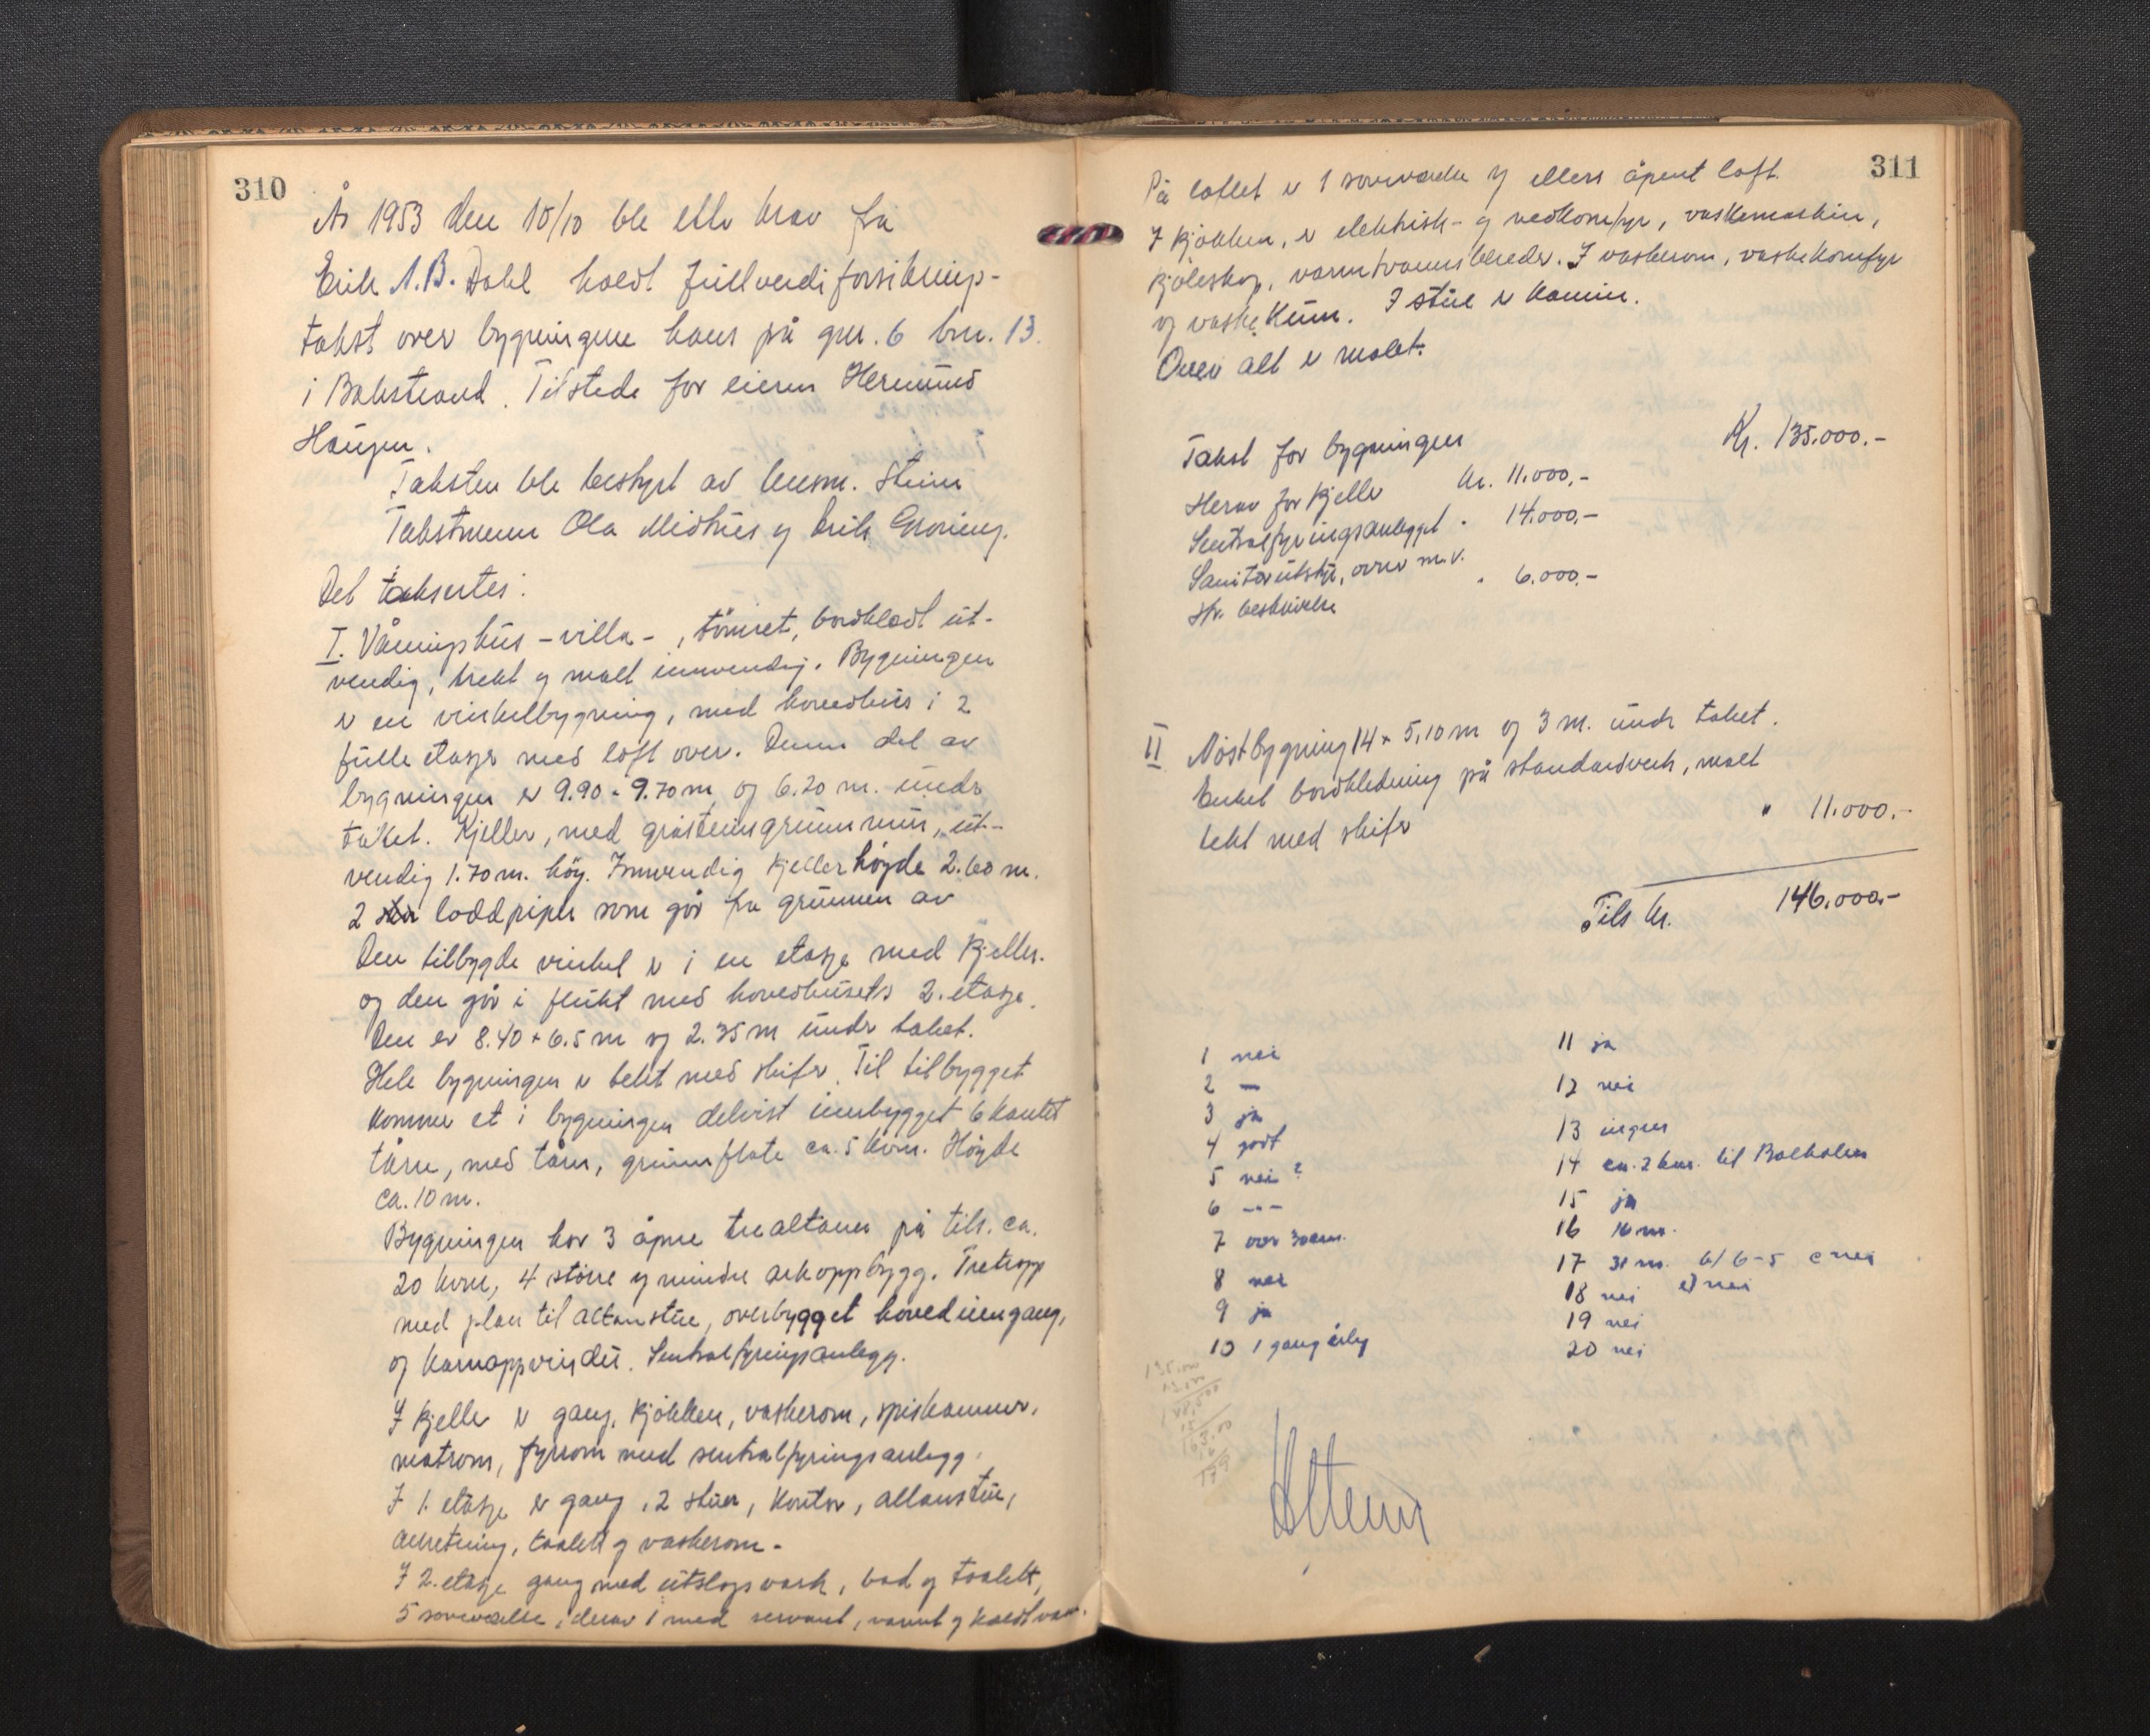 310
År 1953 den 10/10 ble etter krav fra
Erik A.B. Dahl holdt fullverdiforsikrings-
takst over bygningene hans på gnr. 6 bnr. 13.
i Bakstrand. Tilstede for eieren Hermund
Haugen.
Taksten ble bestyrt av lensm. Steine
Takstmenn Ola Midthus og Erik
Det taksertes:
I. Våningshus - villa -, tömret, bordkledt ut-
vendig, trekt og malt innvendig. Bygningen
er en vinkelbygning, med hovedhus i 2
fulle etasjer med loft over. Denne del av
bygningen er 9.90 x 9.70 m og 6.20 m. under
taket. Kjeller, med gråsteinsgrunnmur, ut-
vendig 1.70 m. höy. Innvendig kjellerhöyde 2.60 m.
2 loddpiper som går fra grunnen av
Den tilbygde vinkel er i en etasje med kjeller.
og den går i flukt med hovedhusets 2. etasje.
Den er 8.40 x 6.5 m og 2.35 m under taket.
Hele bygningen er tekt med skifer. Til tilbygget
kommer et i bygningen delvist innbygget 6 kantet
tårn, med tårn, grunnflate ca. 5 kvm. Höyde
ca. 10 m.
Bygningen har 3 åpne trealtaner på tils. ca.
20 kvm, 4 större og mindre arkoppbygg. Tretrapp
med plan til altanstue, overbygget hovedinngang,
og karnappvindu. Sentralfyringsanlegg.
I kjeller er gang, kjökken, vaskerom, spiskammer,
matrom, fyrrom med sentralfyringsanlegg.
I 1. etasje er gang, 2 stuer, kontor, altanstue,
anretning, toalett og vaskerom.
I 2. etasje gang med utslagsvask, bad og toalett,
5 soverværelse, derav 1 med servant, varmt og kaldt vann.
311
På loftet er 1 soverværelse og ellers åpent loft.
I kjökken, er elektrisk- og vedkomfyr, vaskemaskin,
kjöleskap, varmtvannsbereder. I vaskerom, vaskekomfyr
og vaskekum. I stue er kamin.
Over alt er malet.
Takst for bygningen Kr. 135.000.-
Herav for kjeller kr. 11.000.-
Sentralfyringsanlegget " 14.000.-
Sanitærutstyr, ovner m.v.
" 6.000.-
str. beskrivelse
II Nöstbygning 14 x 5,10 m og 3 m. under taket.
Enkel bordkledning på standardverk, malt
tekt med skifer " 11.000.-
Tils kr. 146.000.-
1 nei
2 —
3 ja
4 godt
5 nei ?
6 -"-
7 over 30 cm.
8 nei
9 ja
10 1 gang årlig
11 ja
12 nei
13 ingen
14 ca. 2 km. til Balholm
15 ja
16 16 m.
17 31 m. b/ 6-5 c nei
18 nei e) nei
19 nei
20 nei
HSteine